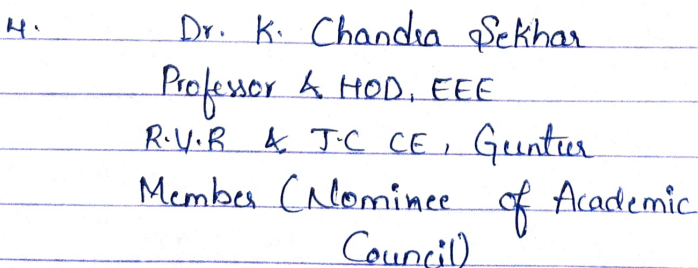 4. Dr. K. Chandra Sekhar
Professor & HOD, EEE
R.V.R & J.C CE, Guntur
Member (Nominee of Academic
Council)